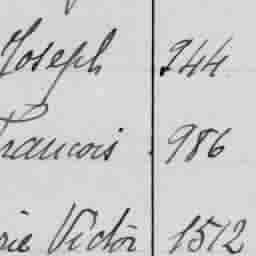 Joseph 244
François 986
rie Victor 1512